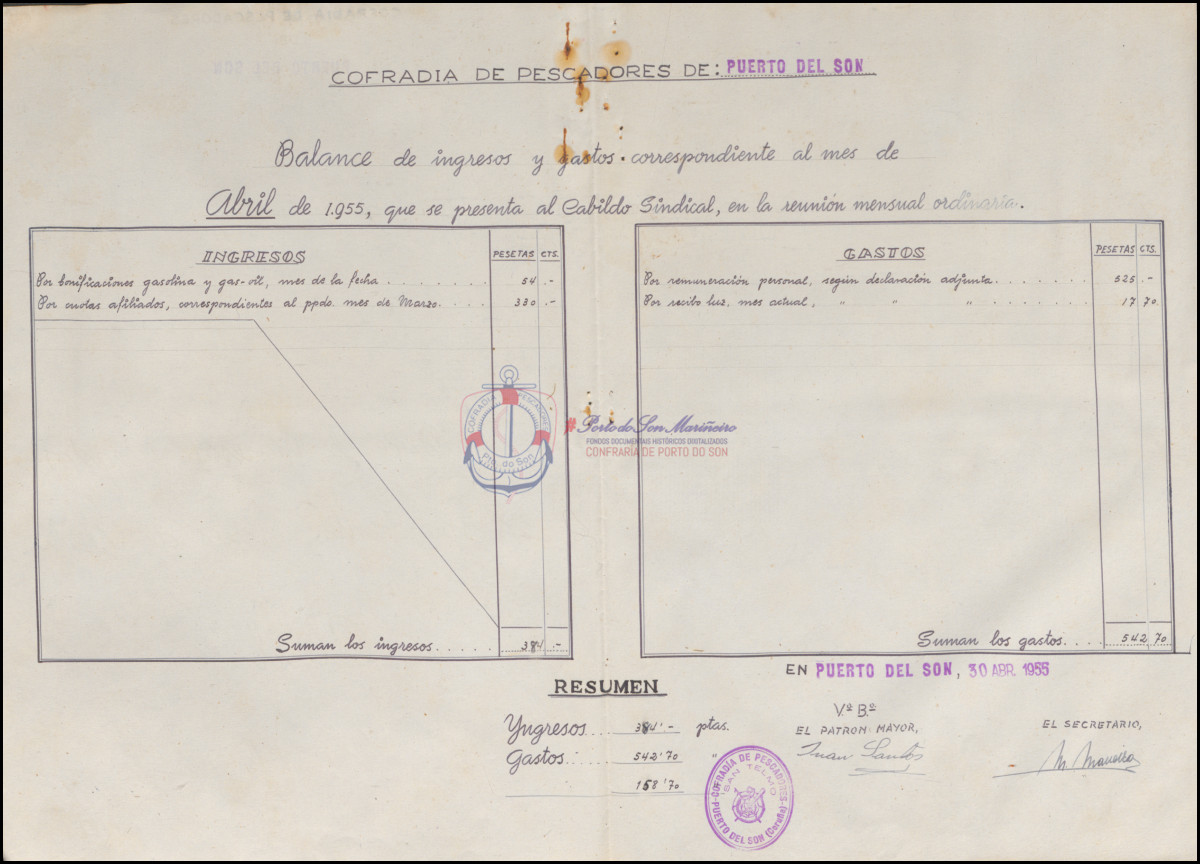 COFRADIA DE PESCADORES DE: PUERTO DEL SON
Balance de ingresos y gastos correspondiente al mes de
Abril de 1.955, que se presenta al Cabildo Sindical, en la reunión mensual ordinaria.
INGRESOS PESETAS CTS.
Por bonificaciones gasolina y gas-oil, mes de la fecha . . . . . . . . . 54 .-
Por cuotas afiliados, correspondientes al ppdo. mes de Marzo. . . . . 330 .-
Suman los ingresos. . . . . . 384 .-
GASTOS PESETAS CTS.
Por remuneración personal, según declaración adjunta. . . . . . . . 525 .-
Por recibo luz, mes actual, " " " . . . . . . . . 17 70.
Suman los gastos. . . . 542 70
COFRADIA PESCADORES
Pto. do Son
#Porto do Son Mariñeiro
FONDOS DOCUMENTAIS HISTÓRICOS DIGITALIZADOS
CONFRARÍA DE PORTO DO SON
EN PUERTO DEL SON, 30 ABR. 1955
RESUMEN
Yngresos . . . 384'- ptas.
Gastos . . . . 542'70 "
158'70
COFRADIA DE PESCADORES
SAN TELMO
PUERTO DEL SON (Coruña)
Vº Bº
EL PATRON MAYOR,
Juan Santos
EL SECRETARIO,
M. Maneiro